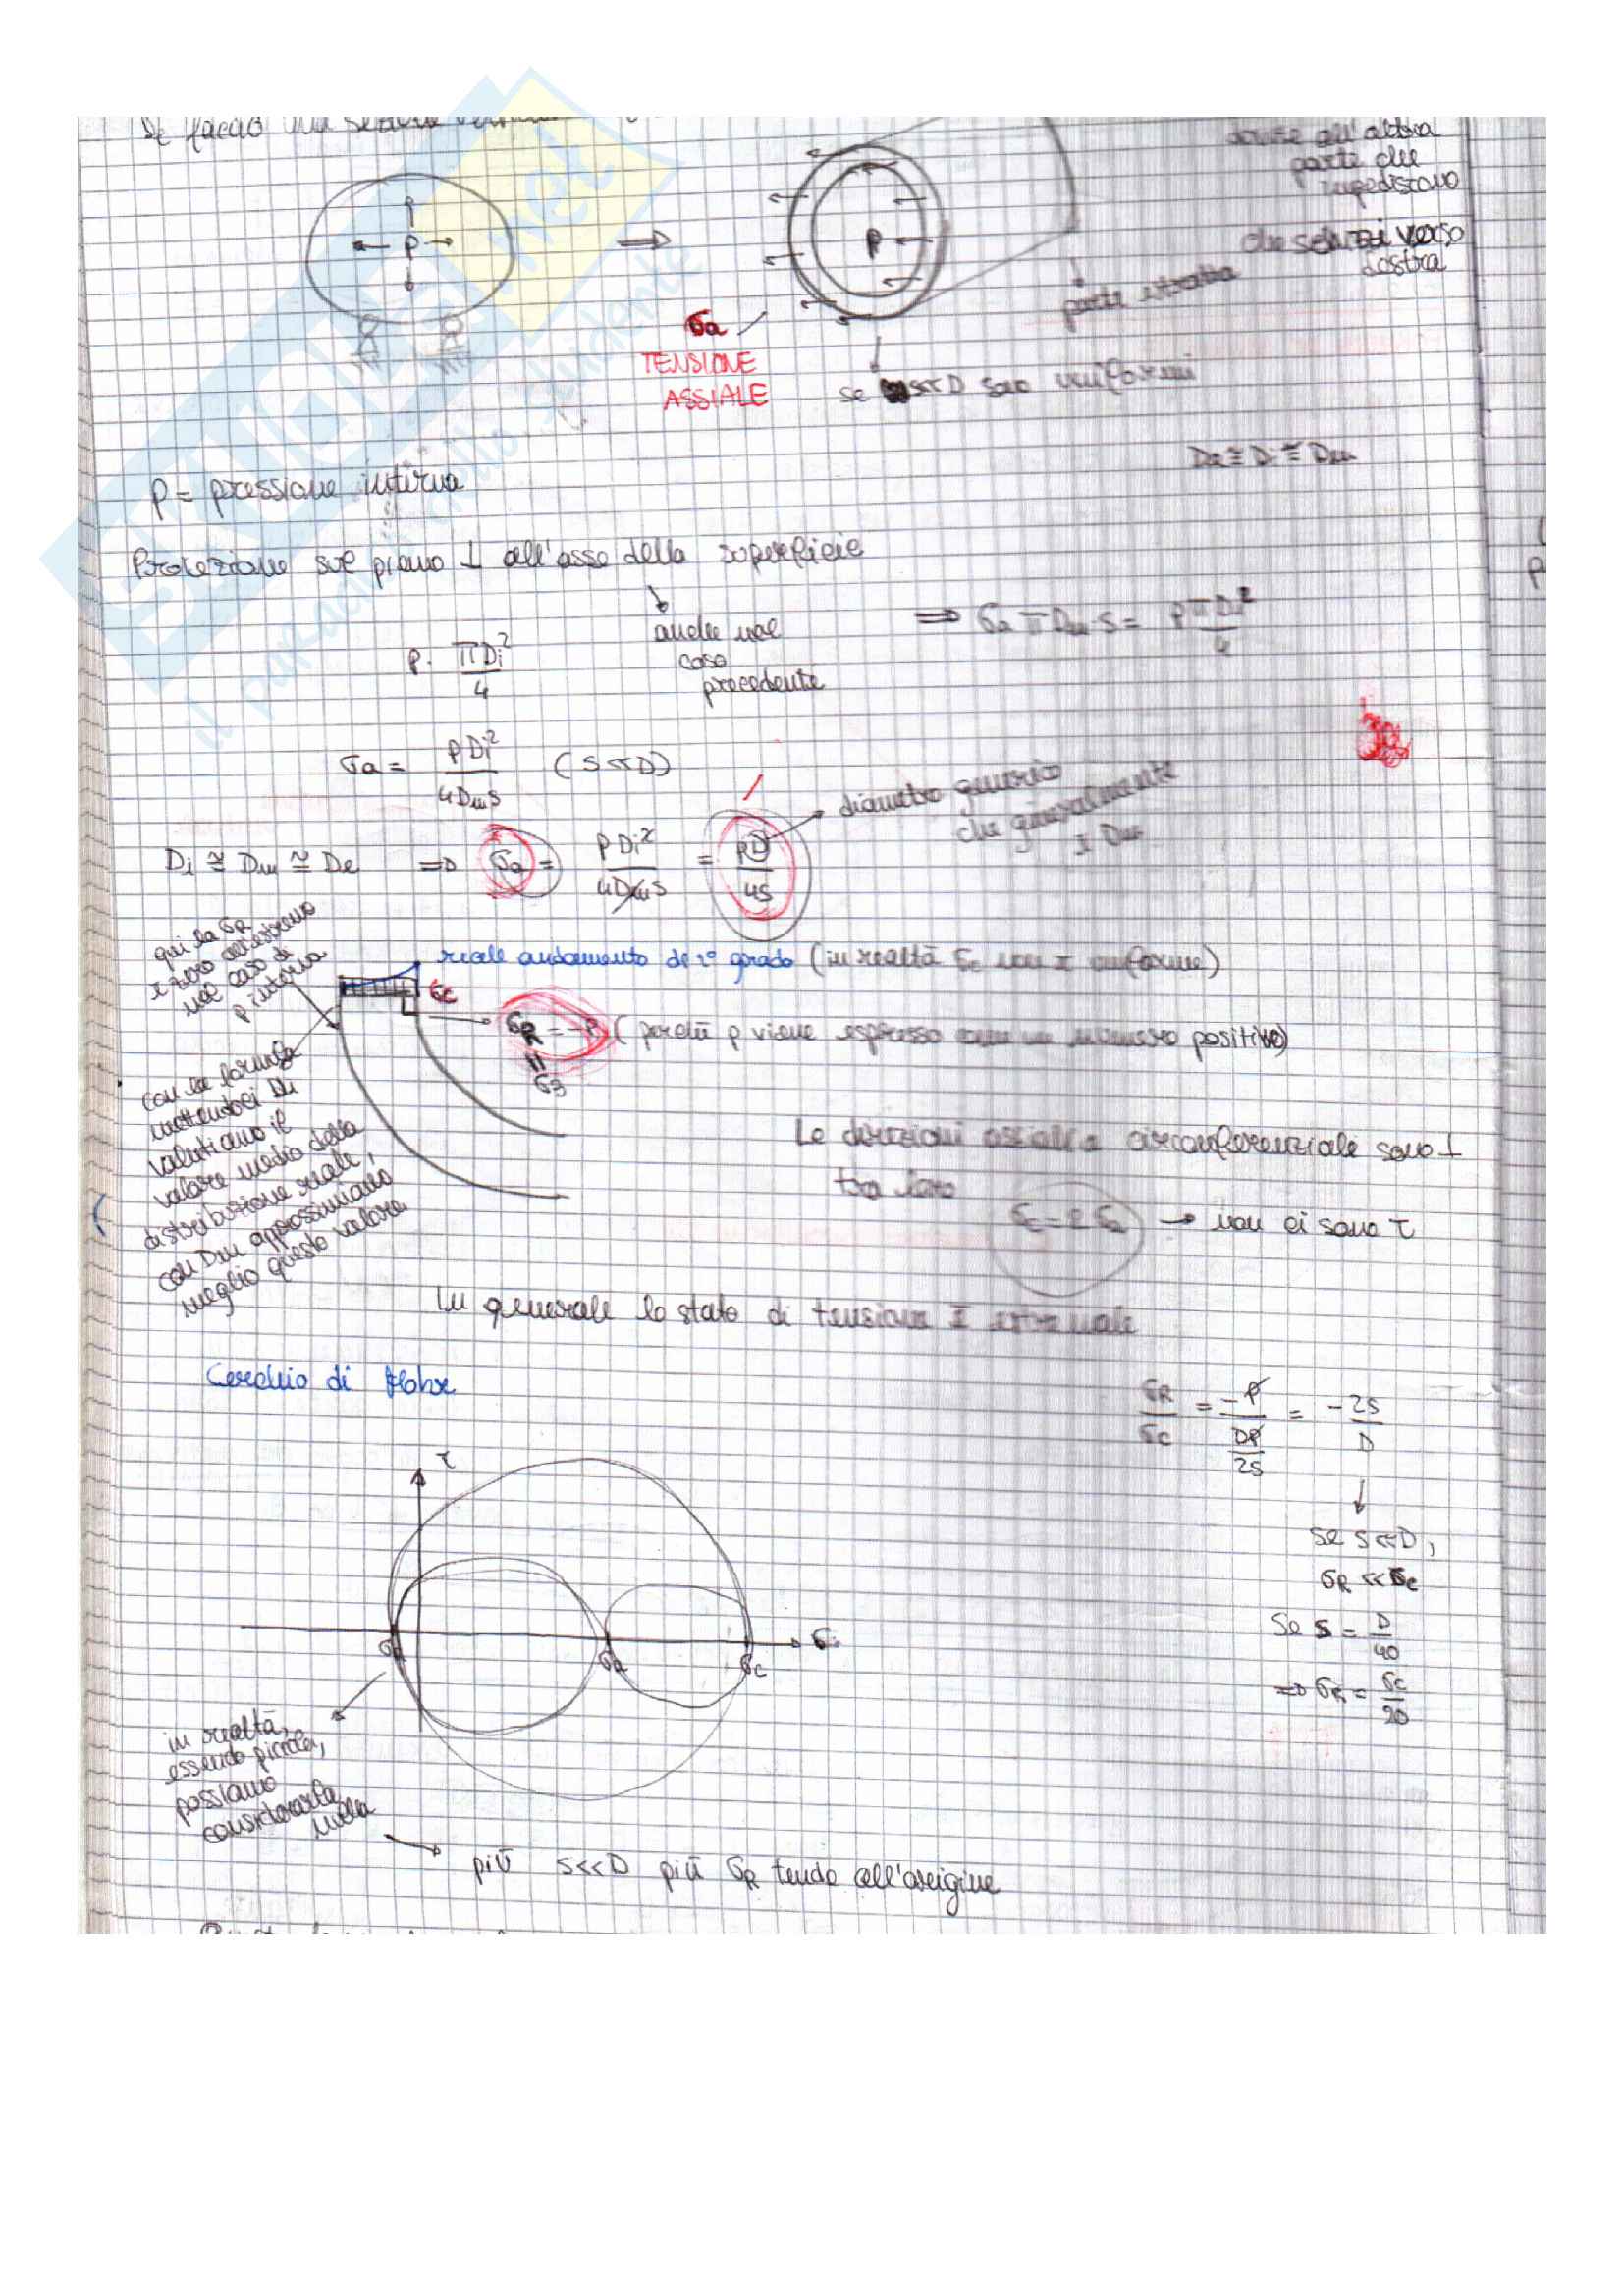 Se faccio una sezione
dovute all'altra
parte che
impediscono
che schizzi verso
destra
p
p
σa
TENSIONE
ASSIALE
parte estratta
se s<<D sono uniformi
De ≅ Di ≅ Dm
p = pressione interna
Proiezione sul piano ⊥ all'asse della superficie
anche nel
caso
precedente
p · πDi²/4
⇒ σa π Dm · s = pπDi²/4
σa = pDi²/4Dms (s<<D)
diametro generico
che generalmente
è Dm
Di ≅ Dm ≅ De ⇒ σa = pDi²/4Dms = pD/4s
qui la σR
è zero all'estremo
nel caso di
p interna
reale andamento di 2° grado (in realtà σc non è uniforme)
σc
σR = -p (perché p viene espresso come un numero positivo)
= σ3
con la formula
mettendoci Dm
valutiamo il
valore medio della
distribuzione reale,
con Dm approssimiamo
meglio questo valore
Le direzioni assiale e circonferenziale sono ⊥
tra loro
σc = 2σa → non ci sono τ
In generale lo stato di tensione è
Cerchio di Mohr
σR/σc = -p/(Dp/2s) = -2s/D
se s<<D,
σR << σc
Se s = D/40
⇒ σR = σc/20
τ
σR
σa
σc
σ
in realtà,
essendo piccola,
possiamo
considerarla
nulla
più s<<D più σR tende all'origine
SKUOLA.net
il paradiso dello studente